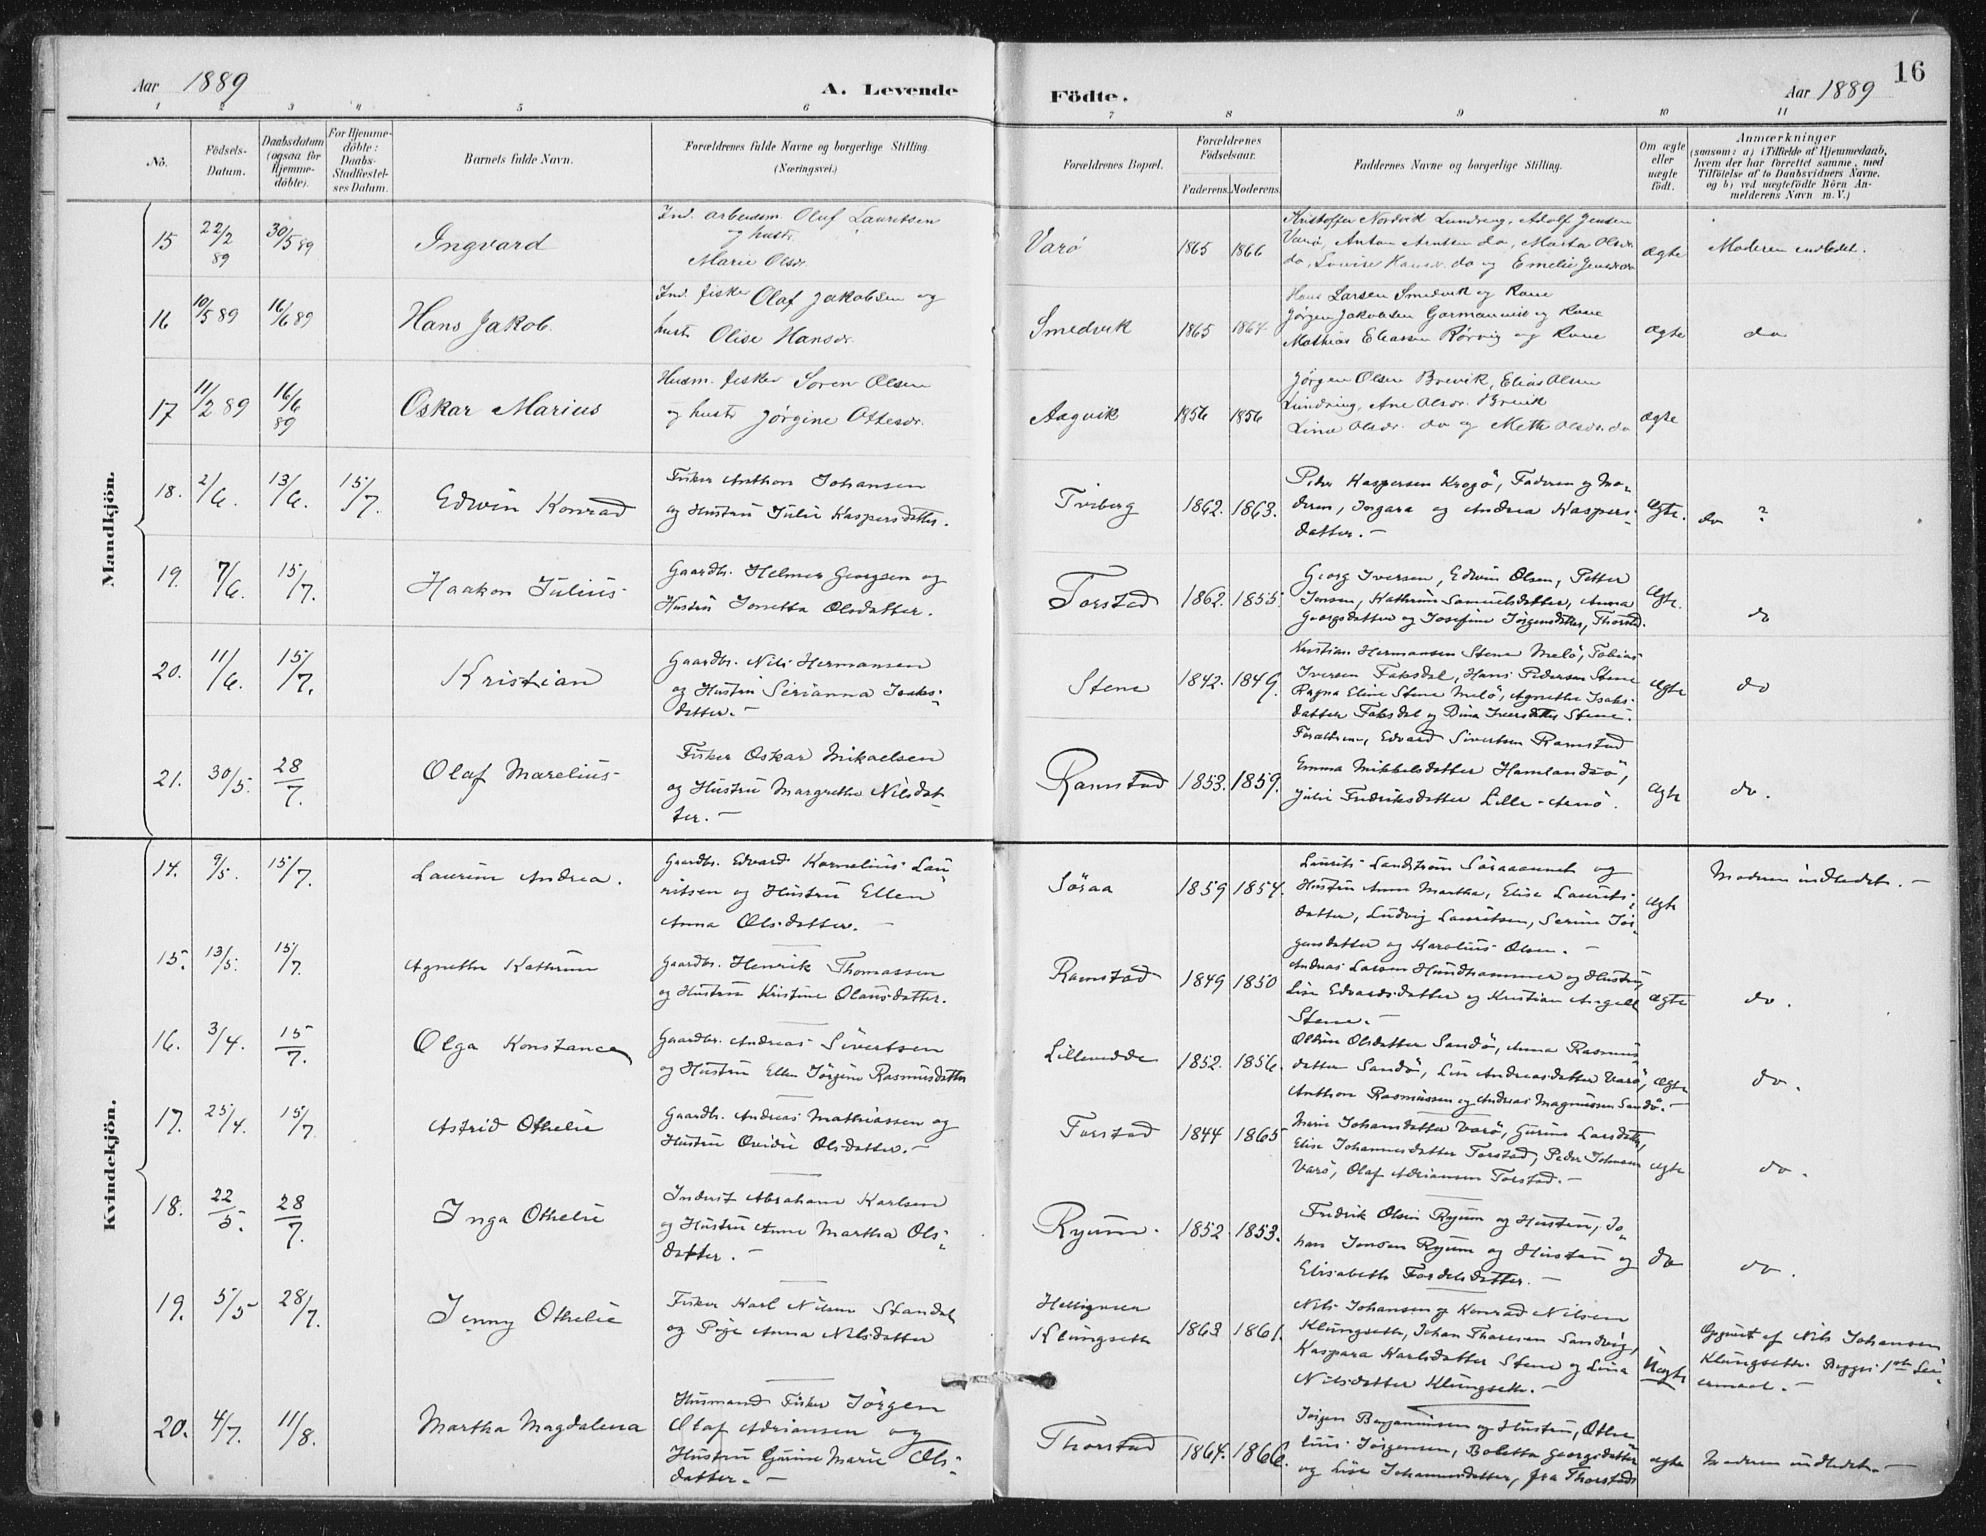 Aar 1889
A. Levende
Födte.
Aar 1889
16
1 2 3 4 5 6 7 8 9 10 11
No.
Födsels-
Datum.
Daabsdatum
(ogsaa for
Hjemme-
döbte).
For Hjemme-
döbte:
Daabs-
Stadfæstel-
ses Datum.
Barnets fulde Navn.
Forældrenes fulde Navne og borgerlige Stilling.
(Næringsvei.)
Forældrenes Bopæl.
Forældrenes
Födselsaar.
Faderens. Moderens.
Faddernes Navne og borgerlige Stilling.
Om ægte
eller
uægte
födt.
Anmærkninger
(saasom: a) i Tilfælde af Hjemmedaab,
hvem der har forrettet samme, med
Tilföielse af to Daabsvidners Navne.
og b) ved uægtefödte Börn An-
melderens Navn m. V.)
Mandkjön.
15 22/2 89 30/5 89 Ingvard
Ind. arbeidsm. Oluf Lauritsen
og hustr.
Marie Olsdr.
Varø 1865 1866
Kristoffer Nordvik Lundring, Adolf Jensen
Varø, Anton Arntsen do, Marta Olsdr.
do, Lovise Hansdr. do og Emelie Jensdr. do
ægte Moderen indledet.
16 10/5 89 16/6 89 Hans Jakob.
Ind. fisker Olaf Jakobsen og
hustr. Olise Hansdr.
Smedvik 1865 1864
Hans Larsen Smedvik og Kone
Jørgen Jakobsen og Kone
Mathias Eliassen Rørvig og Kone
ægte do
17 11/2 89 16/6 89 Oskar Marius
Husm. fisker Soren Olsen
og hustr. Jørgine Ottesdr.
Aagvik 1856 1856
Jørgen Olsen Brevik, Elias Olsen
Lundring, Ane Olsdr. Brevik
Lina Olsdr. do og Mette Olsdr. do
ægte
18. 2/6. 13/6. 15/7. Edwin Konrad
Fisker Anthon Johansen
og Hustru Julie Kaspersdatter.
Tviberg 1862. 1863.
Peder Kaspersen Krogö, Faderen og Mo-
deren, Ingara og Andrea Kaspers-
datter. –
ægte. do ?
19. 7/6. 15/7. Haakon Julius
Gaardbr. Helmer Georgsen og
Hustru Jonetta Olsdatter.
Torstad 1862. 1855.
Georg Iversen, Edwin Olsen, Petter
Jensen, Kathrine Samuelsdatter, Anna
Georgsdatter og Josefine Jörgensdatter, Thorstad.
ægte. do
20. 11/6. 15/7. Kristian
Gaardbr. Nils Hermansen
og Hustru Serianna Isaks-
datter. –
Stene 1842. 1849.
Kristian Hermansen Stene Melö, Tobias
Iversen Faksdal, Hans Pedersen Stene
Ragna Eline Stene Melö, Agnethe Isaks-
datter Faksdal og Dina Iversdatter Stene.
ægte do
21. 30/5. 28/7. Olaf Marelius
Fisker Oskar Mikaelsen
og Hustru Margrethe Nilsdat-
ter. –
Ramstad 1853. 1859.
Forældrene, Edvard Sivertsen Ramstad
Emma Mikkelsdatter Hamlandsö,
Julie Fredriksdatter Lille-Arnö.
ægte do.
Kvindekjön.
14. 9/5. 15/7. Laurine Andrea.
Gaardbr. Edvard Kornelius Lau-
ritsen og Hustru Ellen
Anna Olsdatter.
Söraa 1859 1854.
Laurits Landström og
Hustru Anne Martha, Elise Laurits-
datter, Ludvig Lauritsen, Serine Jör-
gensdatter og Karolius Olsen. –
ægte Moderen indledet. –
15. 13/5. 15/7. Agnethe Kathrine
Gaardbr. Henrik Thomassen
og Hustru Kristine Olausdatter.
Ramstad 1849 1850
Andreas Larsen Hundhammer og Hustru,
Lise Edvardsdatter og Kristian Angell
Stene. –
ægte do.
16. 3/4. 15/7. Olga Konstance
Gaardbr. Andreas Sivertsen
og Hustru Ellen Jörgine Rasmusdatter
1852. 1856.
Oldine Olsdatter Sandö, Anna Rasmus-
datter Sandö, Lise Andreasdatter Varö,
Anthon Rasmussen og Andreas Magnussen Sandö. –
ægte do.
17. 25/4. 15/7. Astrid Othelie
Gaardbr. Andreas Mathiassen og
Hustru Ovidie Olsdatter. –
Torstad 1844 1865
Marie Johansdatter Varö, Gurine Larsdatter,
Elise Johannesdatter Torstad, Peder Johnsen
Varö, Olaf Adriansen Torstad. –
ægte do.
18. 22/5. 28/7. Inga Othelie
Inderst Abraham Karlsen
og Hustru Anne Martha Ols-
datter. –
Ryum. 1852 1853.
Fredrik Olsen Ryum og Hustru, Jo-
han Jensen Ryum og Hustru og
Elisabeth Fordelsdatter. –
do do.
19. 5/5 28/7. Jenny Othelie
Fisker Karl Nilsen Standal
og Pige Anna Nilsdatter
Klungseth 1863 1861.
Nils Johansen og Konrad Nilsen
Klungseth, Johan Thoresen Sandvig,
Kaspara Karlsdatter Stene og Lina
Nilsdatter Klungseth. –
Uægte
Opgivet af Nils Johansen
Klungseth. Begges 1ste Lei-
ermaal. –
20. 4/7. 11/8. Martha Magdalena
Husmand Fisker Jörgen
Olaf Adriansen og
Hustru Gurine Marie Ols-
datter. –
Thorstad 1864. 1866.
Jörgen Benjaminsen og Hustru, Othe-
lius Jörgensen, Boletta Georgsdatter
og Lise Johannesdatter, fra Thorstad
ægte Moderen indledet. –